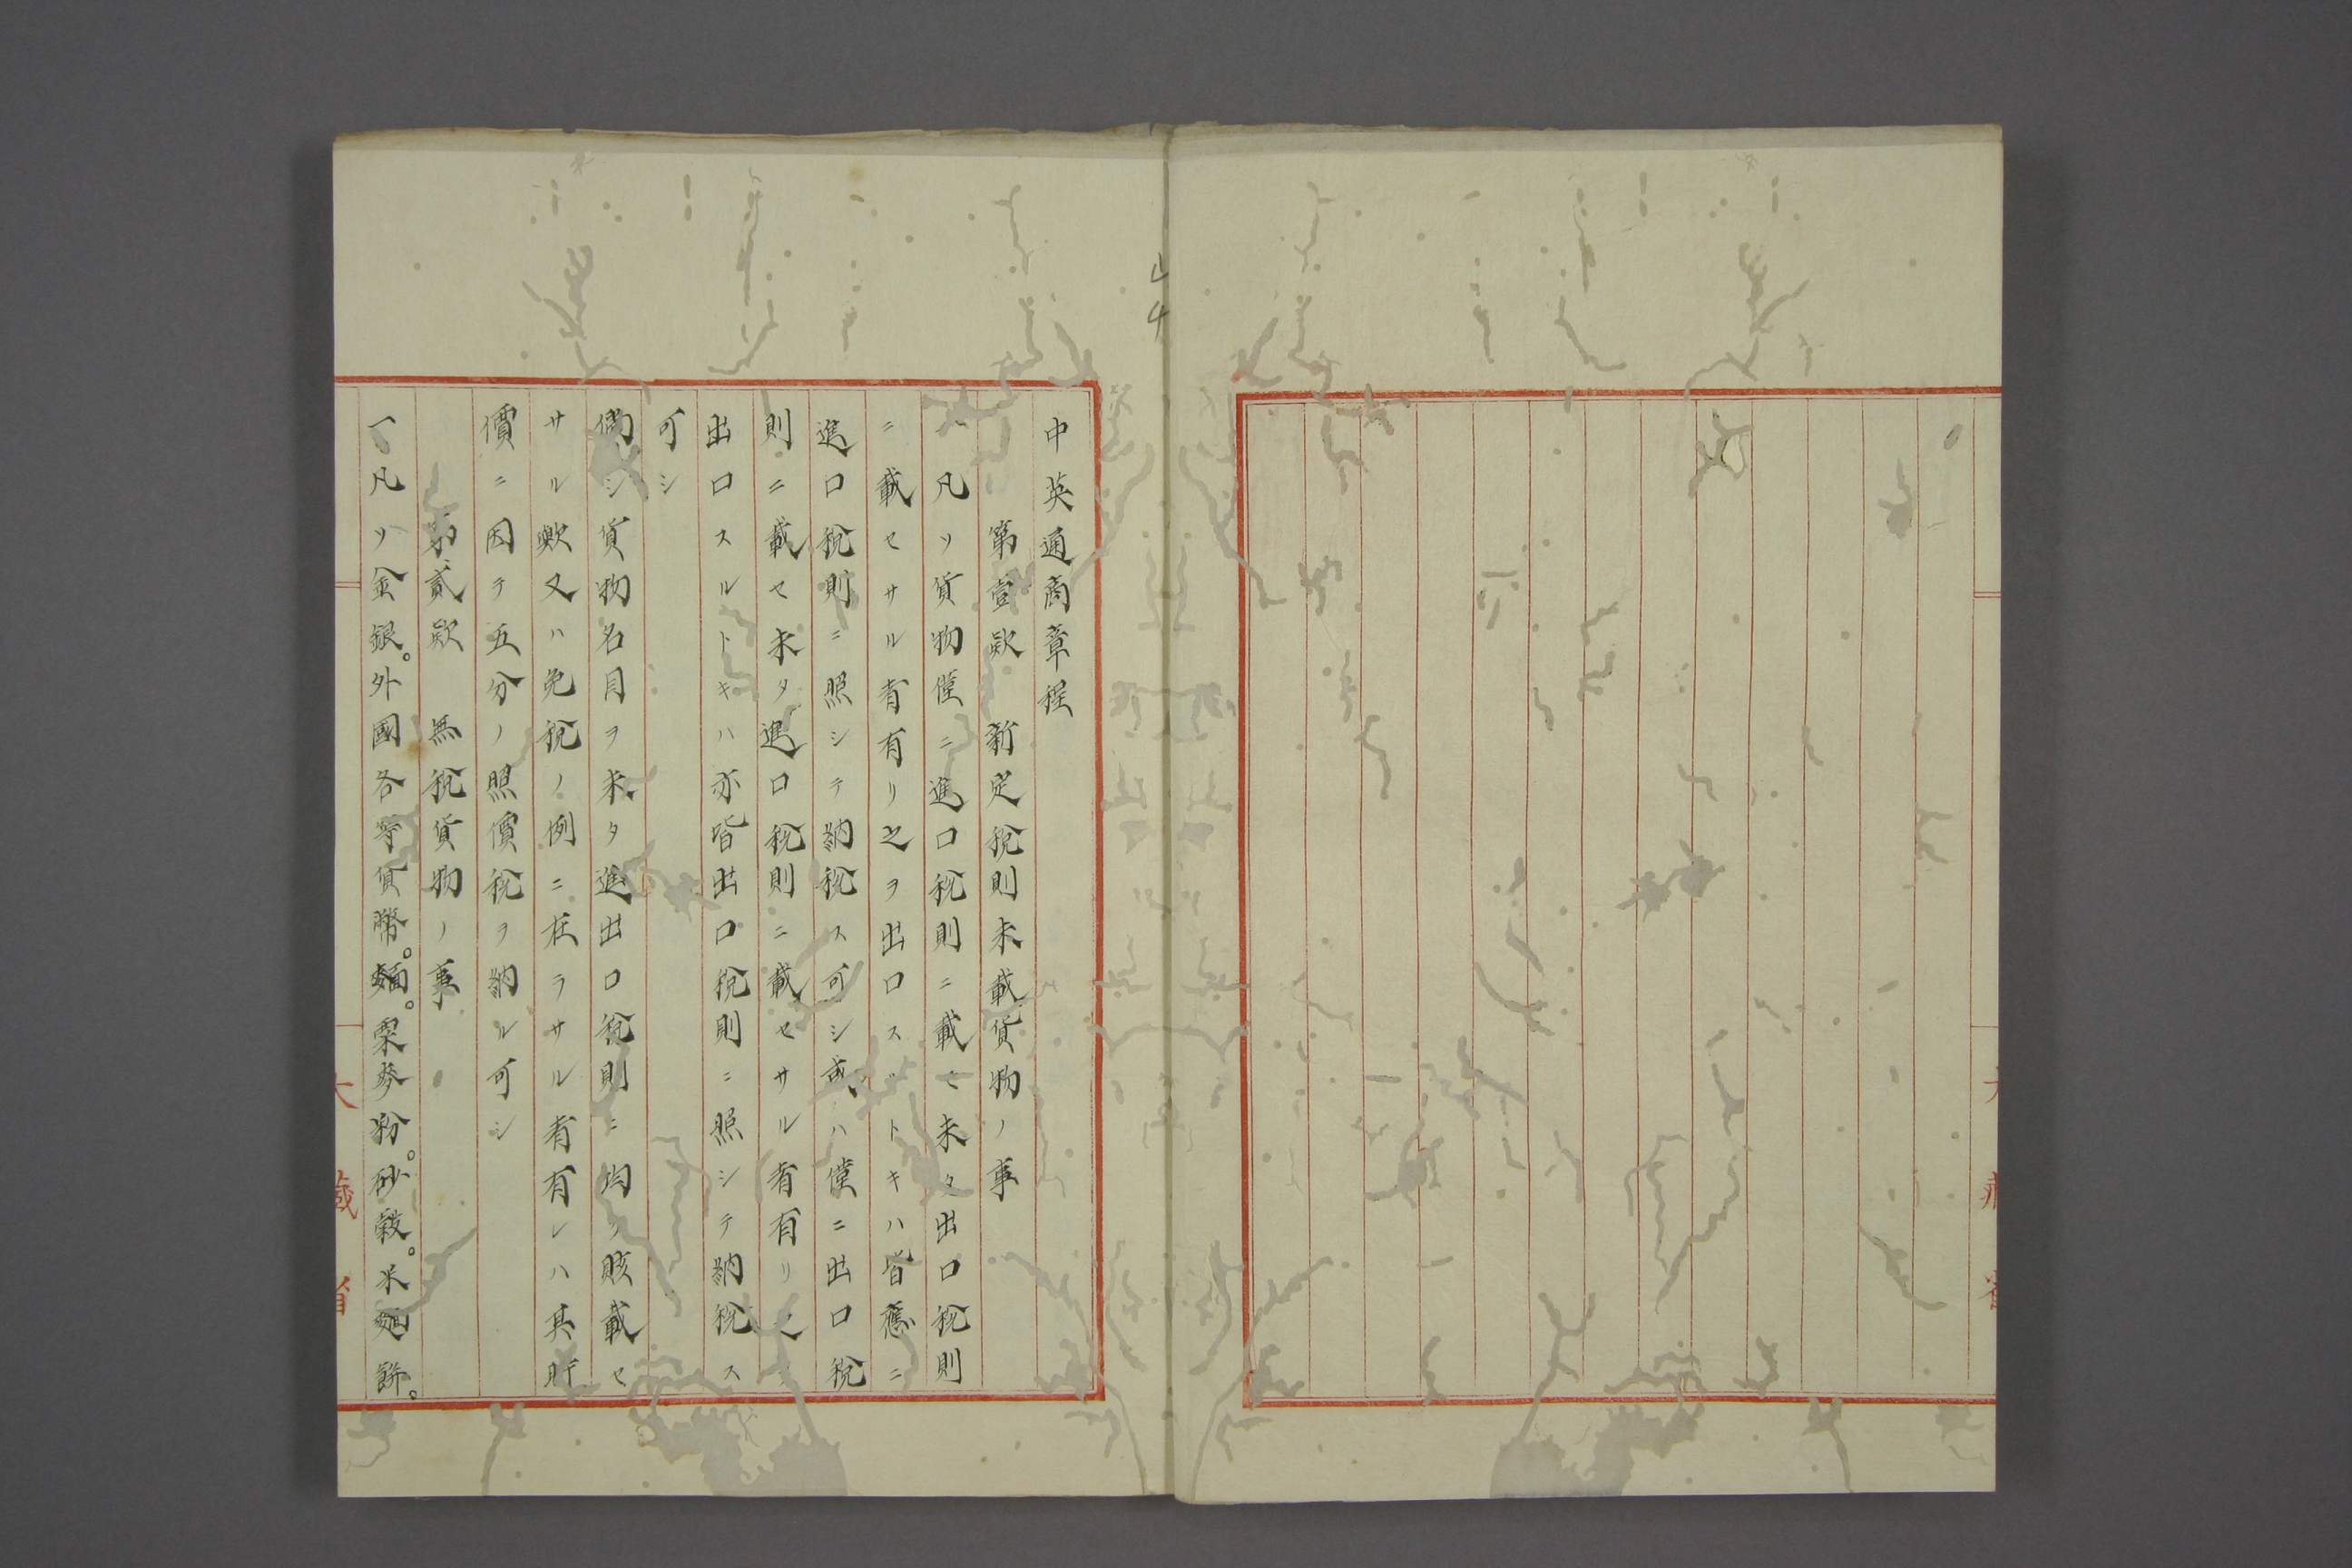 中英通商章程
第壹欵　新定稅則未載貨物ノ事
一凡ソ貨物僅ニ進口稅則ニ載セ未タ出口稅則
ニ載セサル者有リ之ヲ出口スルトキハ皆應ニ
進口稅則ニ照シテ納稅ス可シ或ハ僅ニ出口稅
則ニ載セ未タ進口稅則ニ載セサル者有リ之ヲ
出口スルトキハ亦皆出口稅則ニ照シテ納稅ス
可シ
倘シ貨物名目ヲ未タ進出口稅則ニ均ク賅載セ
サル歟又ハ免稅ノ例ニ在ラサル者有レハ其時
價ニ因テ五分ノ照價稅ヲ納ル可シ
第貳欵　無稅貨物ノ事
一凡ソ金銀。外國各等貨幣。麵。粟麥粉。砂穀。米麵餅。
大藏省